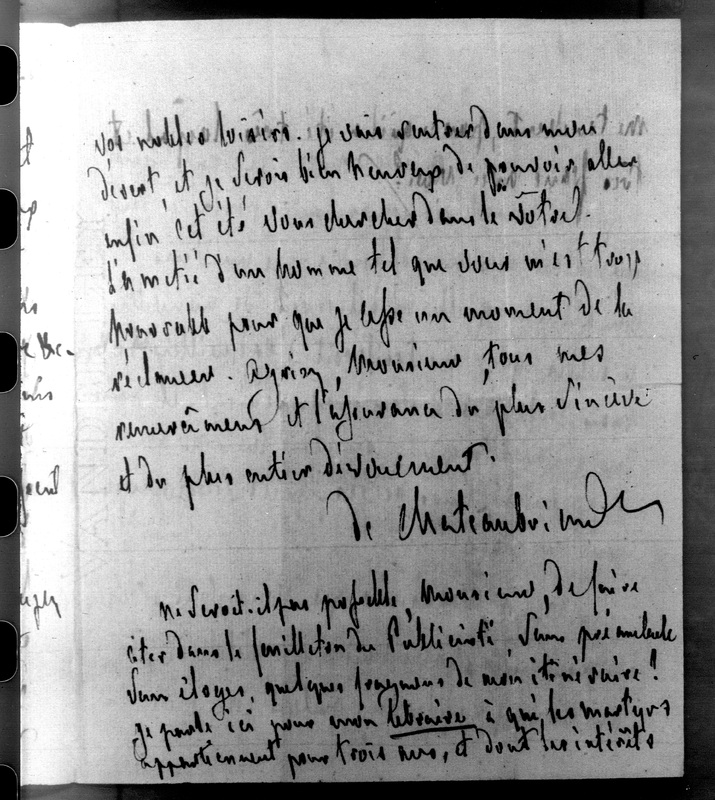 vos nobles loisirs. je vais rentrer dans mon
désert, et je serois bien heureux de pouvoir aller
enfin cet été vous chercher dans le vôtre.
L'amitié d'un homme tel que vous m'est trop
honorable pour que je cesse un moment de la
réclamer. agréez, Monsieur, tous mes
remercîmens et l'assurance du plus sincère
et du plus entier dévouement.
de Chateaubriand
Ne seroit-il pas possible, Monsieur, de faire
citer dans le feuilleton du Publiciste, sans préambule
sans éloges, quelques fragmens de mon itinéraire!
je parle ici pour mon libraire à qui les martyrs
appartiennent pour trois ans, et dont les intérêts